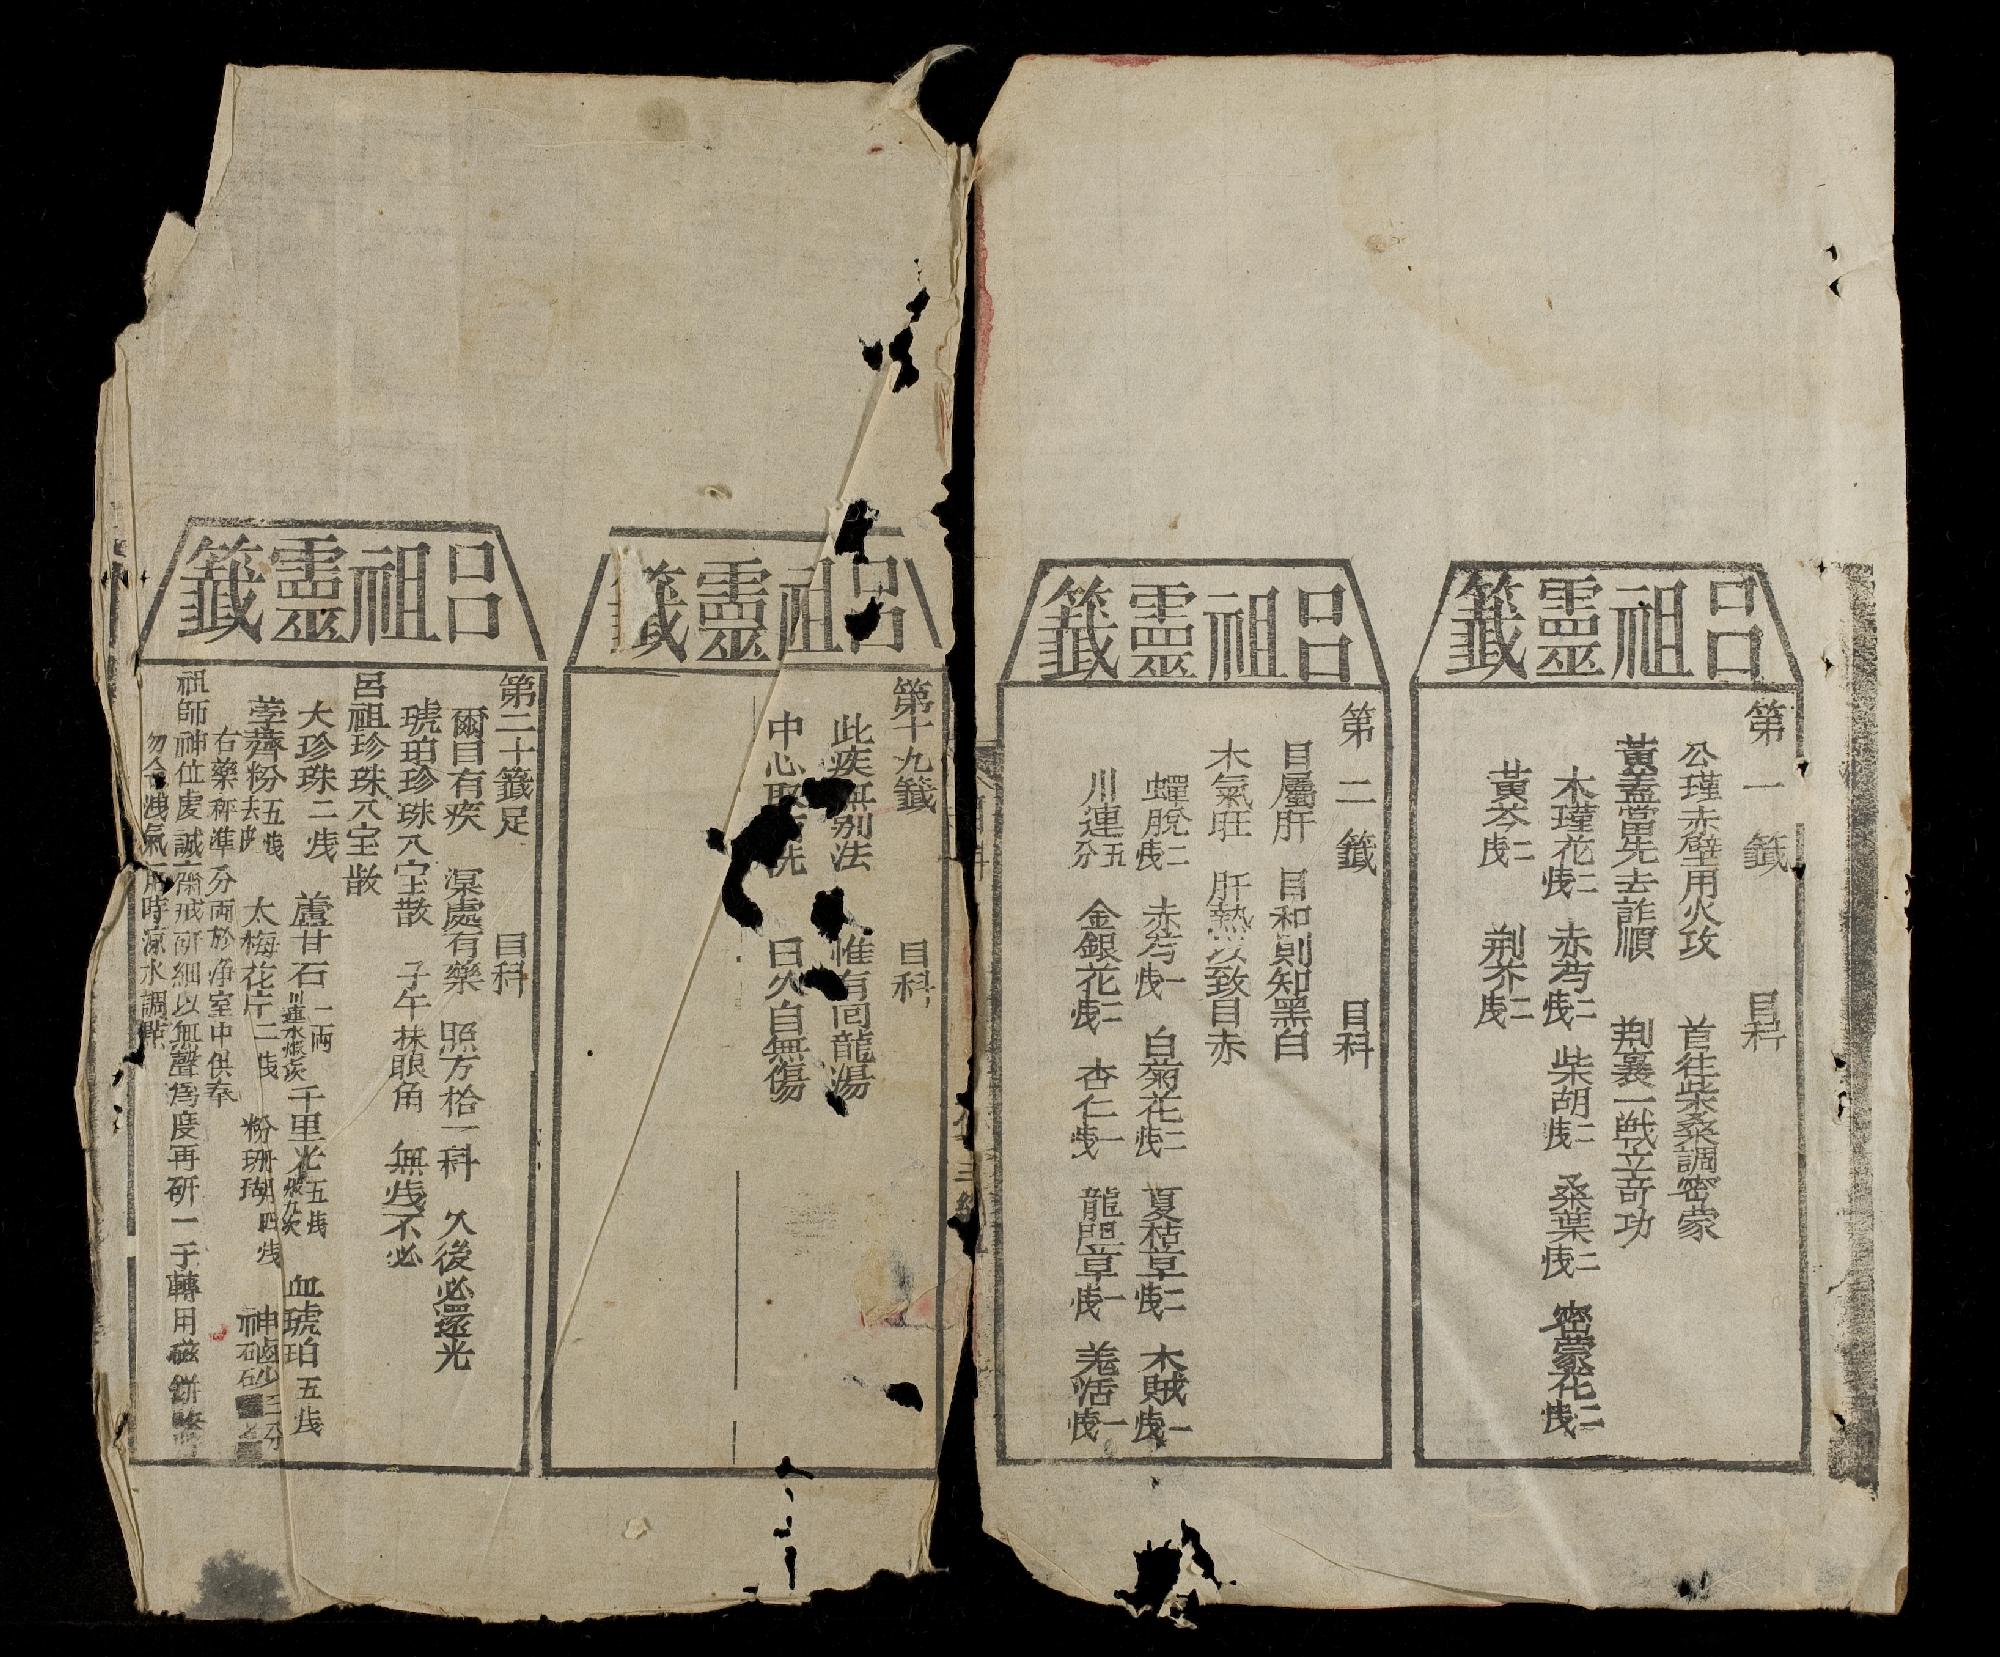 呂祖靈籤
第一籤 目科
公瑾赤壁用火攻 首往柴桑調密蒙
黃蓋當先去詐順 荆襄一戰立奇功
木瑾花二戋 赤芍二戋 柴胡二戋 桑葉二戋 密蒙花二戋
黃芩二戋 荆芥二戋
呂祖靈籤
第二籤 目科
目屬肝 目和則知黑白
木氣旺 肝熱以致目赤
蟬脫二戋 赤芍一戋 白菊花二戋 夏枯草二戋 木賊一戋
川連五分 金銀花二戋 杏仁一戋 龍胆草一戋 羌活一戋
呂祖靈籤
第十九籤 目科
此疾無别法 惟有回龍湯
中心取 洗 日久自無傷
呂祖靈籤
第二十籤足 目科
爾目有疾 深處有藥 照方拾一科 久後必還光
琥珀珍珠八宝散 子午抹眼角 無戋不必
呂祖珍珠八宝散
大珍珠二戋 蘆甘石一両 千里光五戋 血琥珀五戋
荸薺粉五戋去 太梅花片二戋 粉珊瑚四戋 神砂三分
右藥秤準分両於净室中供奉
祖師神位虔誠齋戒研細以無聲爲度再研一子轉用磁
勿令洩氣用時凉水調點